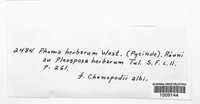 2484. Phoma herbarum West. (Pycnide). Réuni
au Pleospora herbarum Tul. S. F. c. II.
p. 261.
f. Chenopodii albi.
1009144